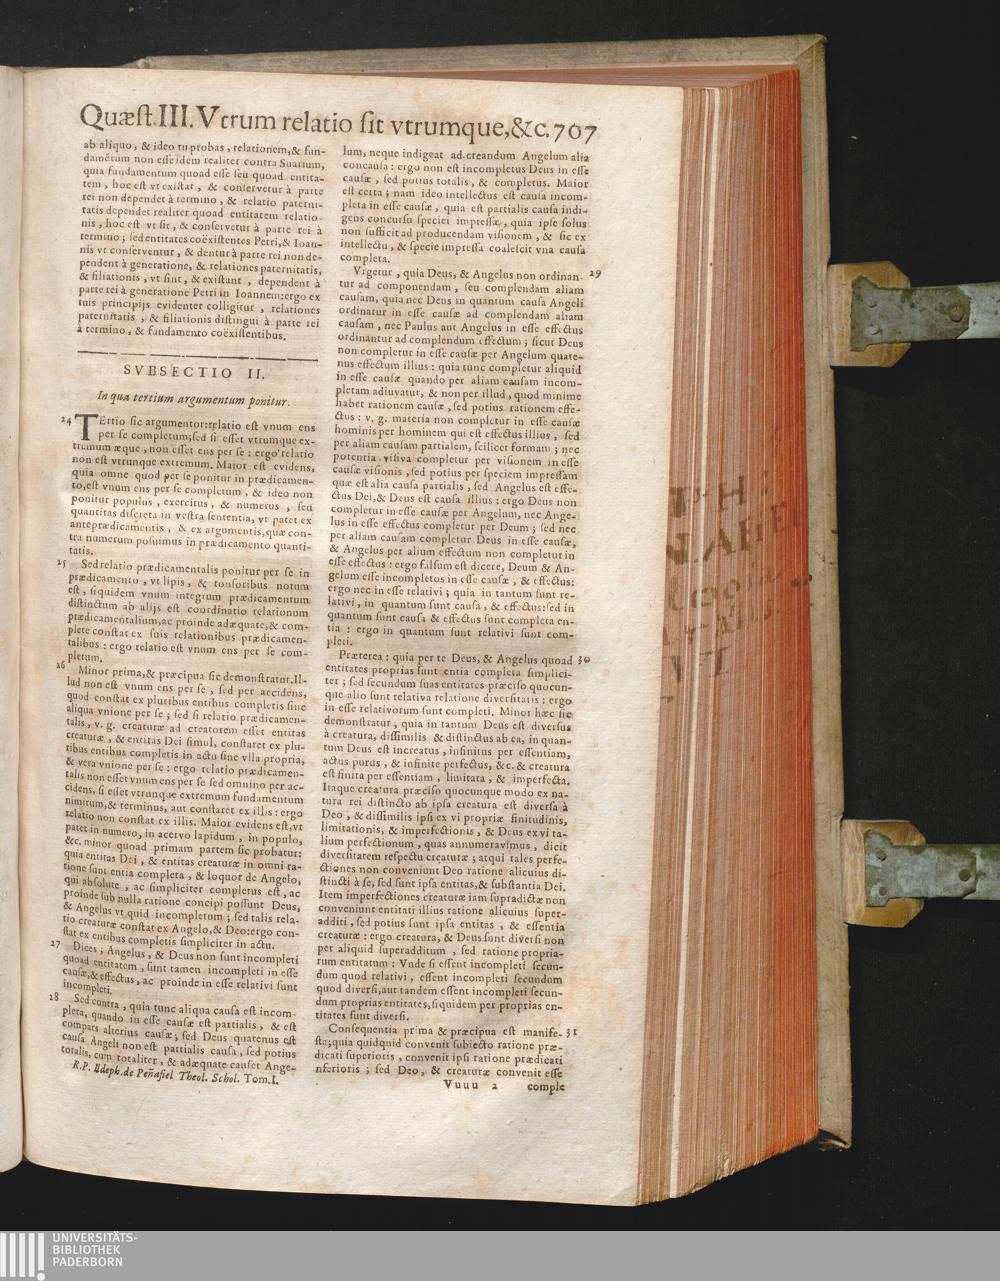 Quæst.III.Vtrum relatio sit vtrumque,&c.707
ab aliquo, & ideo tu probas, relationem,& fun-
damētum non esse idem realiter contra Suarium,
quia fundamentum quoad esse seu quoad entita-
tem, hoc est vt existat, & conservetur à parte
rei non dependet à termino, & relatio paterni-
tatis dependet realiter quoad entitatem relatio-
nis, hoc est vt sit, & conservetur à parte rei à
termino; sed entitates coëxistentes Petri,& Ioan-
nis vt conserventur, & dentur à parte rei non de-
pendent à generatione, & relationes paternitatis,
& filiationis, vt sint, & existant, dependent à
parte rei à generatione Petri in Ioannem:ergo ex
tuis principijs evidenter colligitur, relationes
paternitatis, & filiationis distingui à parte rei
à termino, & fundamento coëxistentibus.
SVBSECTIO II.
In qua tertium argumentum ponitur.
24 TErtio sic argumentor:relatio est vnum ens
per se completum;sed si esset vtrumque ex-
tremum æque, non esset ens per se: ergo relatio
non est vtrunque extremum. Maior est evidens,
quia omne quod per se ponitur in prædicamen-
to,est vnum ens per se completum, & ideo non
ponitur populus, exercitus, & numerus, seu
quantitas discreta in vestra sententia, vt patet ex
antepræedicamentis, & ex argumentis,quæ con-
tra numerum posuimus in prædicamento quanti-
tatis.
25 Sed relatio prædicamentalis ponitur per se in
prædicamento, vt lipis, & tonsoribus notum
est, siquidem vnum integrum prædicamentum
distinctum ab alijs est coordinatio relationum
prædicamentalium,ac proinde adæquate,& com-
plete constat ex suis relationibus prædicamen-
talibus: ergo relatio est vnum ens per se com-
pletum.
26 Minor prima,& præcipua sic demonstratur.Il-
lud non est vnum ens per se, sed per accidens,
quod constat ex pluribus entibus completis sine
aliqua vnione per se; sed si relatio prædicamen-
talis, v. g. creaturæ ad creatorem esset entitas
creaturæ, & entitas Dei simul, constaret ex plu-
ribus entibus completis in actu sine vlla propria,
& vera vnione per se: ergo relatio prædicamen-
talis non esset vnum ens per se sed omnino per ac-
cidens, si esset vtrunque extremum fundamentum
nimirum,& terminus, aut constaret ex illis: ergo
relatio non constat ex illis. Maior evidens est,vt
patet in numero, in acervo lapidum, in populo,
&c. minor quoad primam partem sic probatur:
quia entitas Dei, & entitas creaturæ in omni ra-
tione sunt entia completa, & loquor de Angelo,
qui absolute, ac simpliciter completus est, ac
proinde sub nulla ratione concipi possunt Deus,
& Angelus vt quid incompletum; sed talis rela-
tio creaturæ constat ex Angelo,& Deo:ergo con-
stat ex entibus completis simpliciter in actu.
27 Dices, Angelus, & Deus non sunt incompleti
quoad entitatem, sunt tamen incompleti in esse
causæ,& effectus, ac proinde in esse relativi sunt
incompleti.
28 Sed contra, quia tunc aliqua causa est incom-
pleta, quando in esse causæ est partialis, & est
compars alterius causæ; sed Deus quatenus est
causa Angeli non est partialis causa, sed potius
totalis, cum totaliter, & adæquate causet Ange-
R.P. Ildeph.de Peñafiel Theol. Schol. Tom.I.
lum, neque indigeat ad creandum Angelum alia
concausa: ergo non est incompletus Deus in esse
causæ, sed potius totalis, & completus. Maior
est certa; nam ideo intellectus est causa incom-
pleta in esse causæ, quia est partialis causa indi-
gens concursu speciei impressæ, quia ipse solus
non sufficit ad producendam visionem, & sic ex
intellectu, & specie impressa coalescit vna causa
completa.
Vrgetur, quia Deus, & Angelus non ordinan- 29
tur ad componendam, seu complendam aliam
causam, quia nec Deus in quantum causa Angeli
ordinatur in esse causæ ad complendam aliam
causam, nec Paulus aut Angelus in esse effectus
ordinantur ad complendum effectum; sicut Deus
non completur in esse causæ per Angelum quate-
nus effectum illius: quia tunc completur aliquid
in esse causæ quando per aliam causam incom-
pletam adiuvatur, & non per illud, quod minime
habet rationem causæ, sed potius rationem effe-
ctus: v. g. materia non completur in esse causæ
hominis per hominem qui est effectus illius, sed
per aliam causam partialem, scilicet formam; nec
potentia visiva completur per visionem in esse
causæ visionis, sed potius per speciem impressam
quæ est alia causa partialis, sed Angelus est effe-
ctus Dei,& Deus est causa illius: ergo Deus non
completur in esse causæ per Angelum, nec Ange-
lus in esse effectus completur per Deum; sed nec
per aliam causam completur Deus in esse causæ,
& Angelus per alium effectum non completur in
esse effectus: ergo falsum est dicere, Deum & An-
gelum esse incompletos in esse causæ, & effectus:
ergo nec in esse relativi; quia in tantum sunt re-
lativi, in quantum sunt causa, & effectus:sed in
quantum sunt causa & effectus sunt completa en-
tia: ergo in quantum sunt relativi sunt com-
pleti.
Præterea: quia per te Deus, & Angelus quoad 30
entitates proprias sunt entia completa simplici-
ter; sed secundum suas entitates præciso quocun-
que alio sunt relativa relatione diversitatis: ergo
in esse relativorum sunt completi. Minor hæc sic
demonstratur, quia in tantum Deus est diversus
à creatura, dissimilis & distinctus ab ea, in quan-
tum Deus est increatus, infinitus per essentiam,
actus purus, & infinite perfectus, &c. & creatura
est finita per essentiam, limitata, & imperfecta.
Itaque creatura præciso quocunque modo ex na-
tura rei distincto ab ipsa creatura est diversa à
Deo, & dissimilis ipsi ex vi propriæ finitudinis,
limitationis, & imperfectionis, & Deus ex vi ta-
lium perfectionum, quas annumeravimus, dicit
diversitatem respectu creaturæ; atqui tales perfe-
ctiones non conveniunt Deo ratione alicuius di-
stincti à se, sed sunt ipsa entitas,& substantia Dei.
Item imperfectiones creaturæ iam supradictæ non
conveniunt entitati illius ratione alicuius super-
additi, sed potius sunt ipsa entitas, & essentia
creaturæ: ergo creatura, & Deus sunt diversi non
per aliquid superadditum, sed ratione propria-
rum entitatum: Vnde si essent incompleti secun-
dum quod relativi, essent incompleti secundum
quod diversi,aut tandem essent incompleti secun-
dum proprias entitates,siquidem per proprias en-
titates sunt diversi.
Consequentia prima & præcipua est manife- 31
sta;quia quidquid convenit subiecto ratione præ-
dicati superioris, convenit ipsi ratione prædicati
nferioris; sed Deo, & creaturæ convenit esse
Vuuu 2 comple
UNIVERSITÄTS-
BIBLIOTHEK
PADERBORN